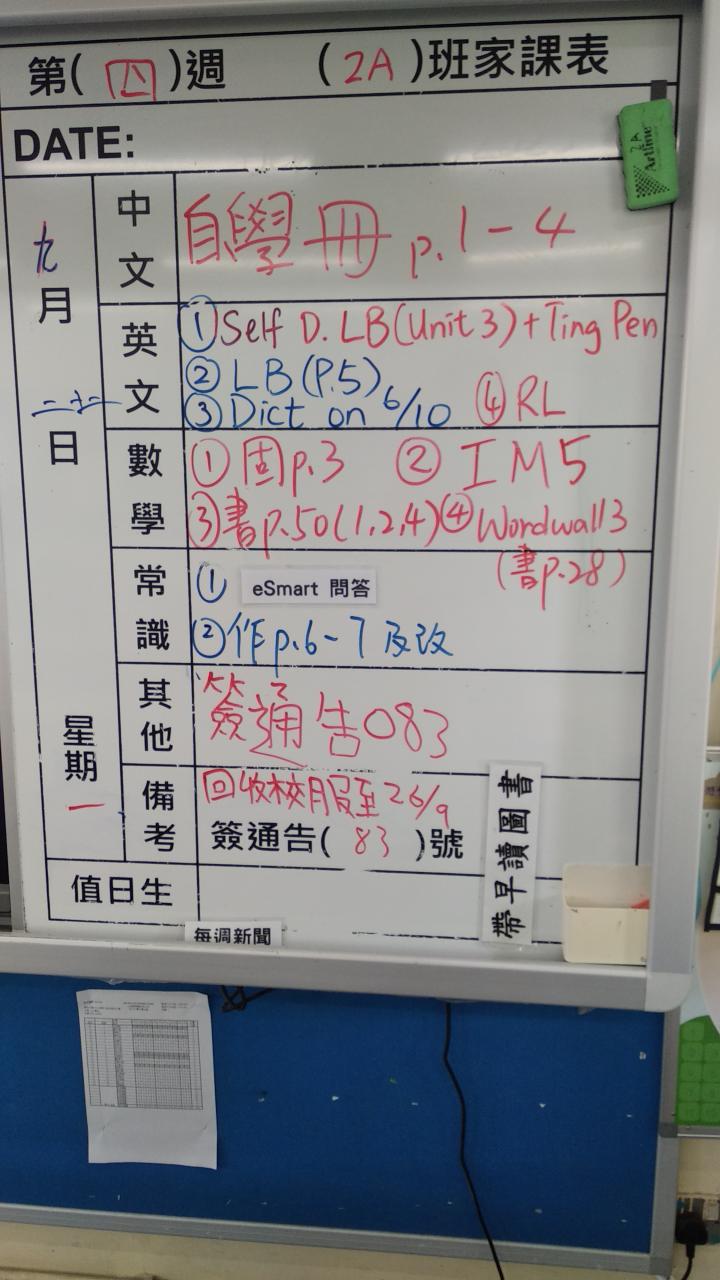 第(四)週 (2A)班家課表
2A Artline
DATE:
九月二十二日 星期一
中文 自學冊 p.1-4
英文 ①Self D. LB(Unit 3)+Ting Pen
②LB(P.5)
③Dict on 6/10 ④RL
數學 ①固p.3 ②IM5
③書p.50(1,2,4)④Wordwall3
(書p.28)
常識 ① eSmart 問答
②作p.6-7及改
其他 簽通告083
備考 回收校服至26/9
簽通告(83)號
帶早讀圖書
值日生
每週新聞